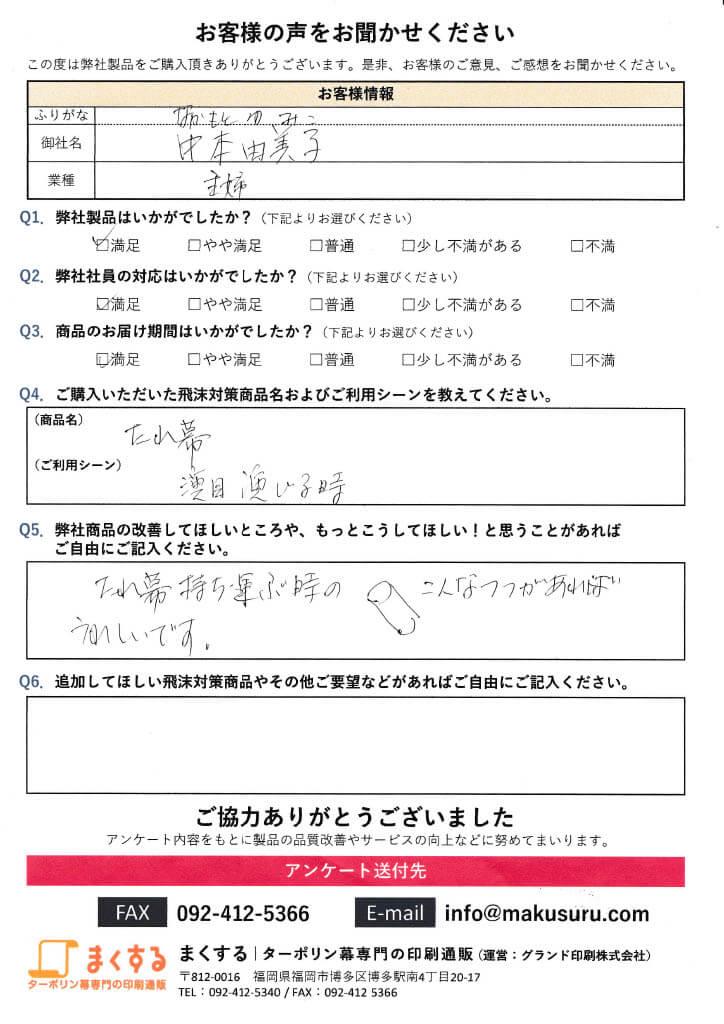 お客様の声をお聞かせください
この度は弊社製品をご購入頂きありがとうございます。是非、お客様のご意見、ご感想をお聞かせください。
お客様情報
ふりがな なかもと ゆみこ
御社名 中本由美子
業種 主婦
Q1. 弊社製品はいかがでしたか？（下記よりお選びください）
☑満足 □やや満足 □普通 □少し不満がある □不満
Q2. 弊社社員の対応はいかがでしたか？（下記よりお選びください）
☑満足 □やや満足 □普通 □少し不満がある □不満
Q3. 商品のお届け期間はいかがでしたか？（下記よりお選びください）
☑満足 □やや満足 □普通 □少し不満がある □不満
Q4. ご購入いただいた飛沫対策商品名およびご利用シーンを教えてください。
（商品名）
たれ幕
（ご利用シーン）
演目 演じる時
Q5. 弊社商品の改善してほしいところや、もっとこうしてほしい！と思うことがあれば
ご自由にご記入ください。
たれ幕持ち運ぶ時の こんなツツがあれば
うれしいです。
Q6. 追加してほしい飛沫対策商品やその他ご要望などがあればご自由にご記入ください。
ご協力ありがとうございました
アンケート内容をもとに製品の品質改善やサービスの向上などに努めてまいります。
アンケート送付先
FAX 092-412-5366 E-mail info@makusuru.com
まくする
ターポリン幕専門の印刷通販
まくする｜ターポリン幕専門の印刷通販（運営：グランド印刷株式会社）
〒812-0016 福岡県福岡市博多区博多駅南4丁目20-17
TEL：092-412-5340 / FAX：092-412 5366